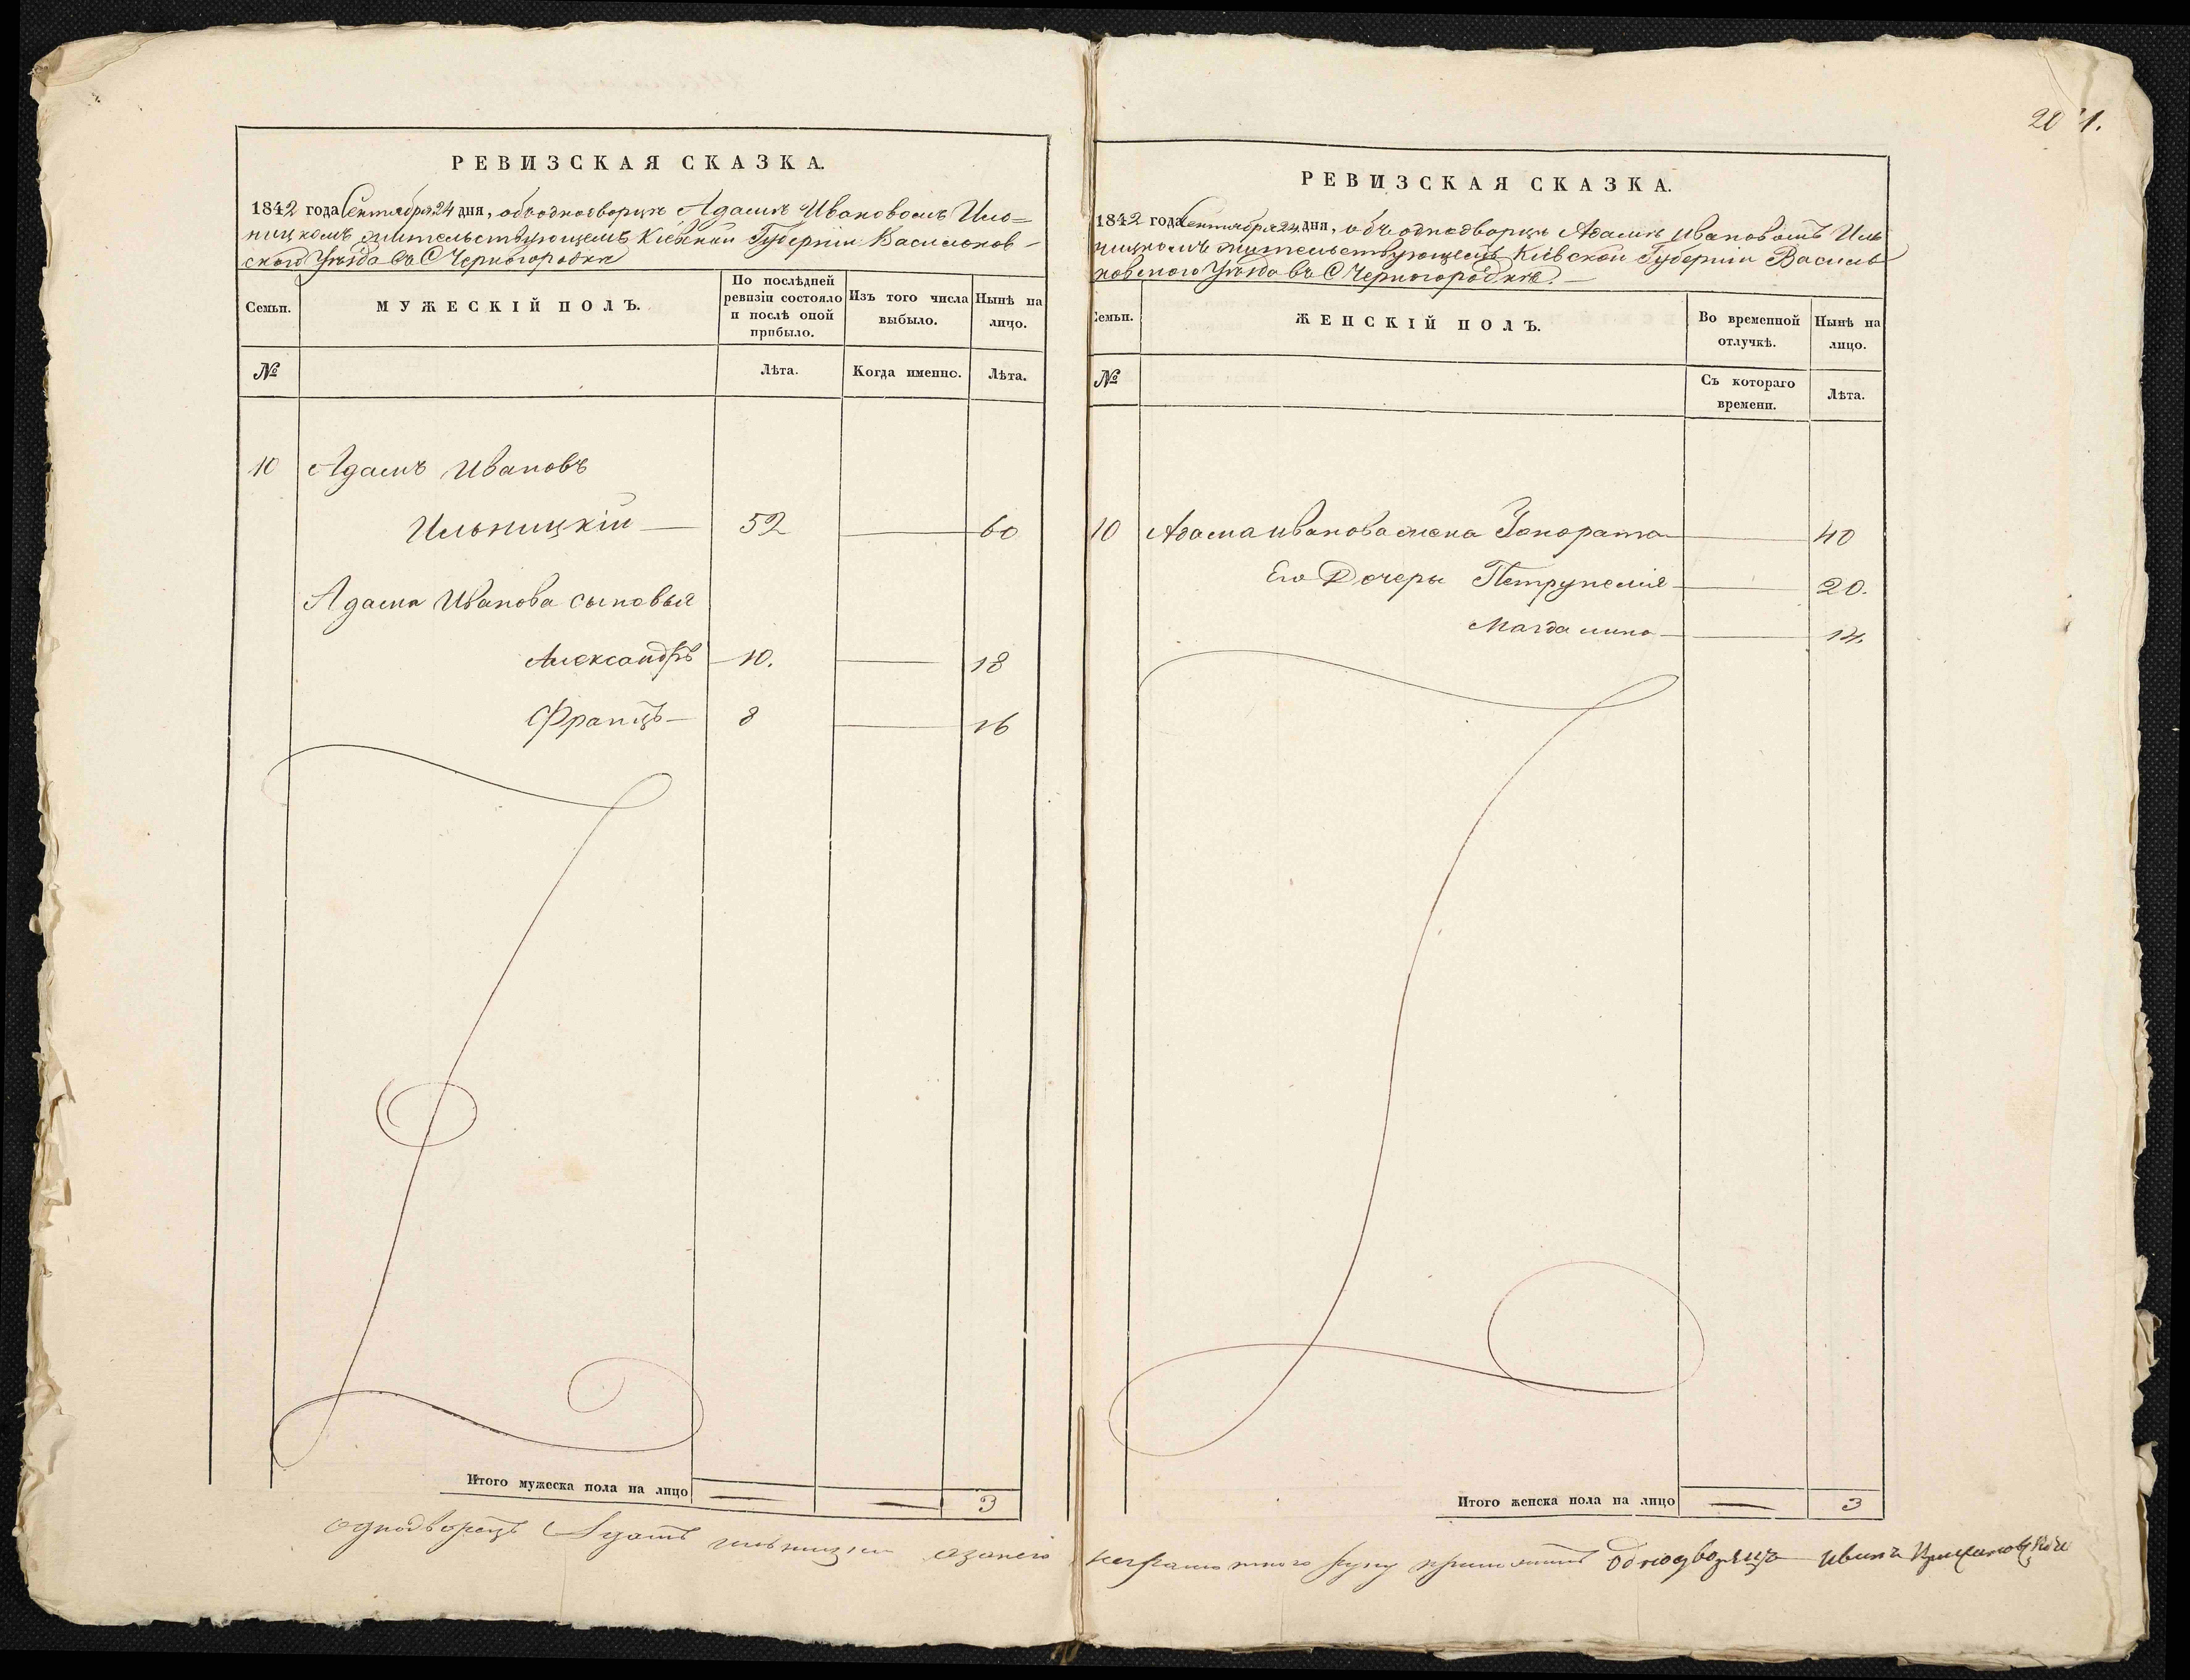 201.
РЕВИЗСКАЯ СКАЗКА.
1842 года Сентября 24 дня, объ однодворцѣ Адамѣ Ивановомъ Иль=
ницкомъ жительствующемъ Кіевской Губерніи Васильков-
скаго Уѣзда въ С Черногородкѣ
Семьи.
МУЖЕСКІЙ ПОЛЪ.
По послѣдней
ревизіи состояло
и послѣ оной
прибыло.
Изъ того числа
выбыло.
Нынѣ на
лицо.
№
Лѣта.
Когда именно.
Лѣта.
10 Адамъ Ивановъ
Ильницкій — 52 — 60
Адама Иванова сыновья
Александръ — 10. — 18
Францъ — 8 — 16
Итого мужеска пола на лицо — — 3
РЕВИЗСКАЯ СКАЗКА.
1842 года Сентября 24 дня, объ однодворцѣ Адамѣ Ивановомъ Иль
ницкомъ жительствующемъ Кіевской Губерніи Василь
ковскаго Уѣзда въ С Черногородкѣ. —
Семьи.
ЖЕНСКІЙ ПОЛЪ.
Во временной
отлучкѣ.
Нынѣ на
лицо.
№
Съ котораго
времени.
Лѣта.
10 Адама Иванова жена Гонората — 40
Его Дочеры Петрунелія — 20.
Магдалина — 14.
Итого женска пола на лицо — 3
однодворецъ Адамъ Ильницкій а за него неграмотного руку приложилъ Однодворецъ Иванъ